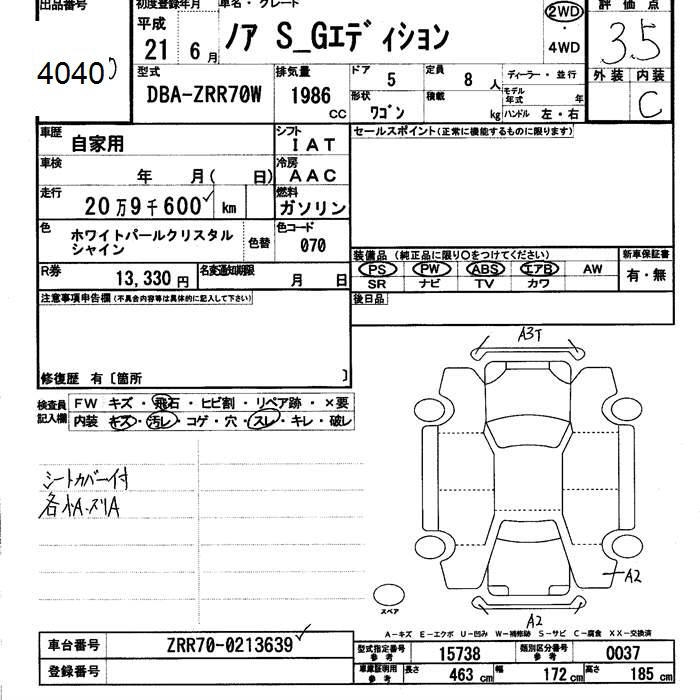 出品番号
4040
初度登録年月
平成
21 6 月
車名・グレード
ノア S_Gエディション
2WD
・
4WD
評価点
3.5
外装 内装
C
型式
DBA-ZRR70W
排気量
1986
CC
ドア 5
定員 8 人
形状 ワゴン
積載 kg
ディーラー・並行
モデル年式 年
ハンドル 左・右
車歴 自家用
シフト IAT
車検 年 月( 日)
冷房 AAC
走行 20万9千600 km
燃料 ガソリン
色 ホワイトパールクリスタル
シャイン
色替
色コード 070
R券 13,330円
名変通知期限 月 日
セールスポイント(正常に機能するものに限ります)
装備品 (純正品に限り○をつけてください)
PS PW ABS エアB AW
SR ナビ TV カワ
新車保証書
有・無
後日品
注意事項申告欄(不具合内容等は具体的に記入して下さい)
修復歴 有〔箇所 〕
検査員
記入欄
FW キズ・飛石・ヒビ割・リペア跡・×要
内装 キズ・汚レ・コゲ・穴・スレ・キレ・破レ
シートカバー付
各小A・スリA
A3T
A2
A2
スペア
A－キズ E－エクボ U－凹み W－補修跡 S－サビ C－腐食 XX－交換済
車台番号 ZRR70-0213639
登録番号
型式指定番号参考 15738
類別区分番号参考 0037
車庫証明用参考 長さ 463 cm 幅 172 cm 高さ 185 cm